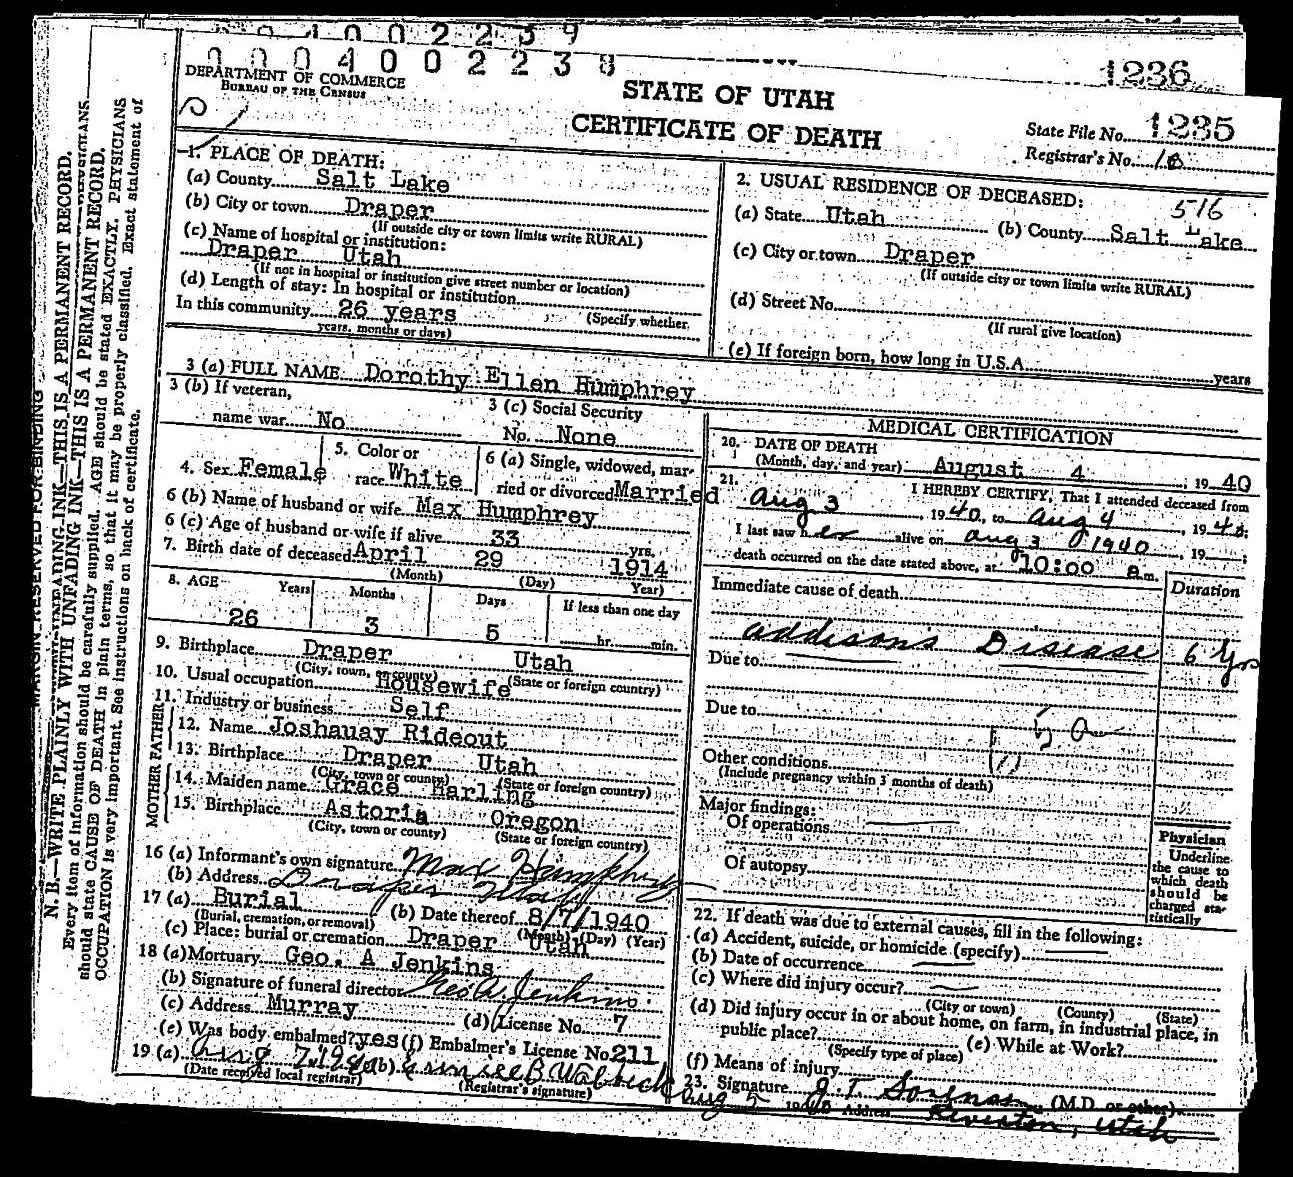 0 0 0 4 0 0 2 2 3 8
1236
DEPARTMENT OF COMMERCE
BUREAU OF THE CENSUS
STATE OF UTAH
CERTIFICATE OF DEATH
State File No. 1235
Registrar's No. 18
1. PLACE OF DEATH:
(a) County Salt Lake
(b) City or town Draper
(If outside city or town limits write RURAL)
(c) Name of hospital or institution:
Draper Utah
(If not in hospital or institution give street number or location)
(d) Length of stay: In hospital or institution
In this community 26 years (Specify whether
years, months or days)
2. USUAL RESIDENCE OF DECEASED:
516
(a) State Utah (b) County Salt Lake
(c) City or town Draper
(If outside city or town limits write RURAL)
(d) Street No.
(If rural give location)
(e) If foreign born, how long in U.S.A. years
3 (a) FULL NAME Dorothy Ellen Humphrey
3 (b) If veteran,
name war No
3 (c) Social Security
No. None
4. Sex Female
5. Color or
race White
6 (a) Single, widowed, mar-
ried or divorced Married
6 (b) Name of husband or wife Max Humphrey
6 (c) Age of husband or wife if alive 33 yrs.
7. Birth date of deceased April 29 1914
(Month) (Day) Year)
8. AGE Years Months Days If less than one day
26 3 5 hr. min.
9. Birthplace Draper Utah
(City, town, or county) (State or foreign country)
10. Usual occupation Housewife
11. Industry or business Self
FATHER
12. Name Joshauay Rideout
13. Birthplace Draper Utah
(City, town or county) (State or foreign country)
MOTHER
14. Maiden name Grace Harling
15. Birthplace Astoria Oregon
(City, town or county) (State or foreign country)
16 (a) Informant's own signature Max Humphrey
(b) Address Draper Utah
17 (a) Burial (b) Date thereof 8/7/1940
(Burial, cremation, or removal) (Month) (Day) (Year)
(c) Place: burial or cremation Draper Utah
18 (a) Mortuary Geo. A Jenkins
(b) Signature of funeral director Geo A. Jenkins.
(c) Address Murray (d) License No. 7
(e) Was body embalmed? yes (f) Embalmer's License No. 211
19 (a) Aug 7. 1940 (b)
(Date received local registrar) (Registrar's signature)
MEDICAL CERTIFICATION
20. DATE OF DEATH
(Month, day, and year) August 4, 1940
21. I HEREBY CERTIFY, That I attended deceased from
Aug 3, 1940, to Aug 4, 1940;
I last saw her alive on Aug 3 1940, 19 ;
death occurred on the date stated above, at 10:00 a.m.
Immediate cause of death Duration
Addison's Disease 6 Yrs
Due to
Due to
Other conditions
(Include pregnancy within 3 months of death)
Major findings:
Of operations
Of autopsy
Physician
Underline
the cause to
which death
should be
charged sta-
tistically
22. If death was due to external causes, fill in the following:
(a) Accident, suicide, or homicide (specify)
(b) Date of occurrence
(c) Where did injury occur?
(City or town) (County) (State)
(d) Did injury occur in or about home, on farm, in industrial place, in
public place? (e) While at Work?
(Specify type of place)
(f) Means of injury
23. Signature J. T. Sorenson (M.D. or other)
Aug 5 1940 Address Riverton, Utah
MARGIN RESERVED FOR BINDING
N. B.—WRITE PLAINLY WITH UNFADING INK—THIS IS A PERMANENT RECORD.
Every item of information should be carefully supplied. AGE should be stated EXACTLY. PHYSICIANS
should state CAUSE OF DEATH in plain terms, so that it may be properly classified. Exact statement of
OCCUPATION is very important. See instructions on back of certificate.